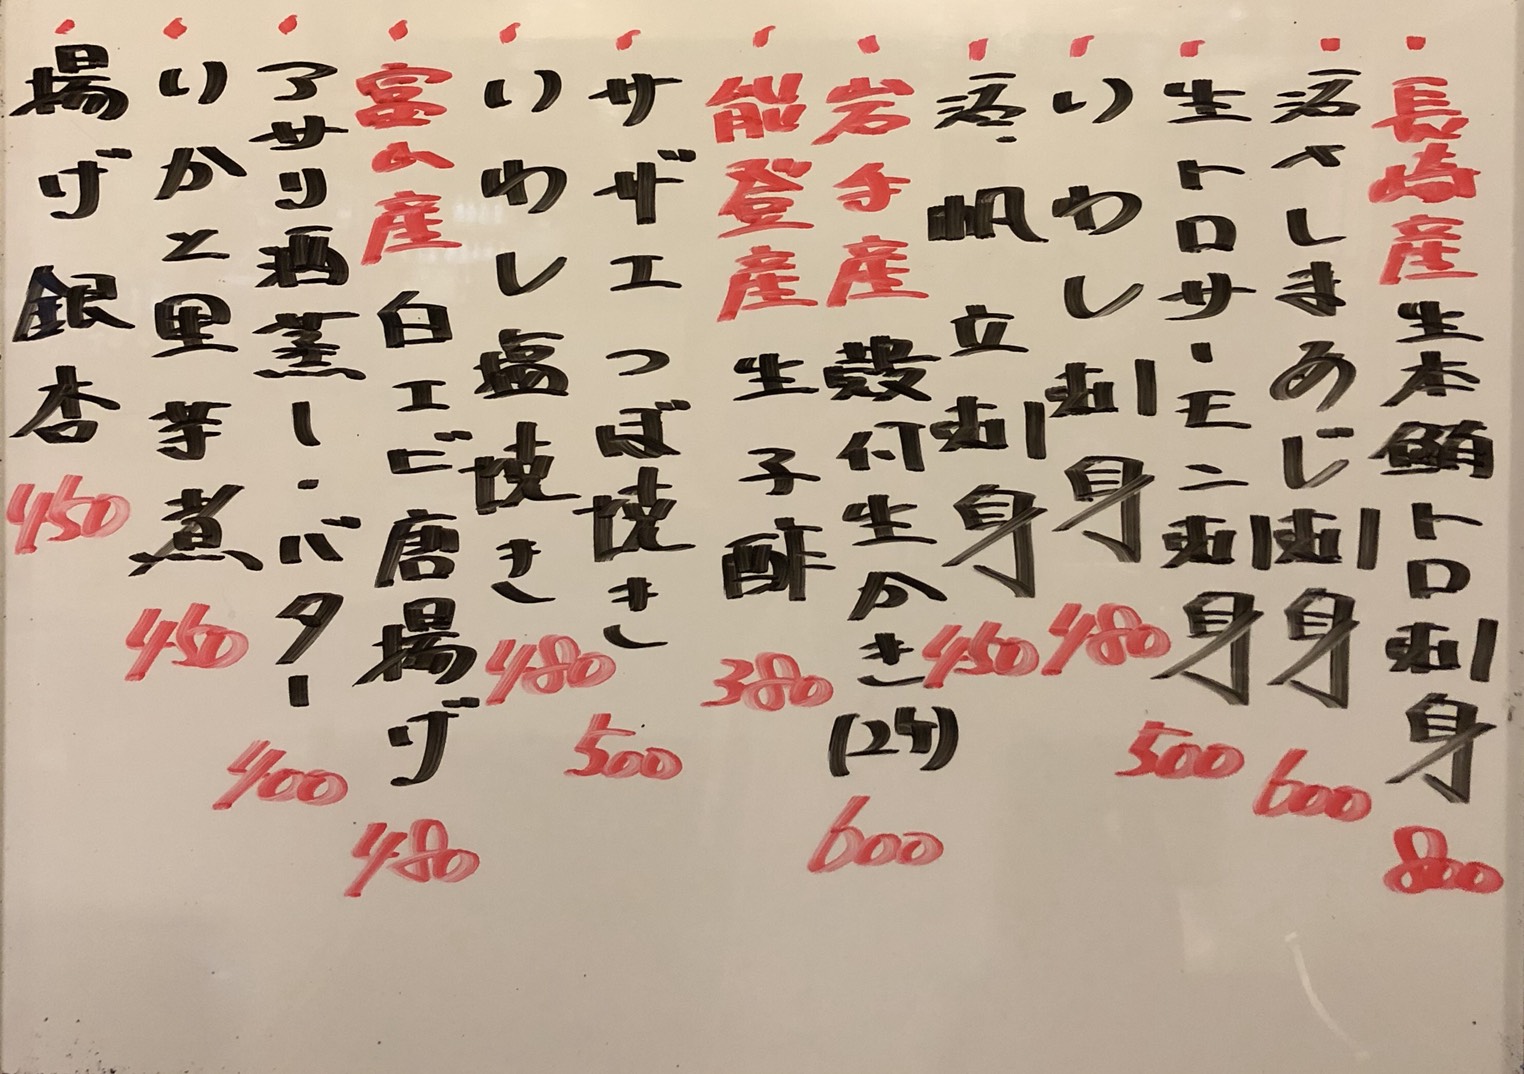 ・長崎産生本鮪トロ刺身 800
・活さしまあじ刺身 600
・生トロサーモン刺身 500
・いわし刺身 480
・活帆立刺身 450
・岩手産殻付生かき(2ケ) 600
・能登産生子酢 380
・サザエつぼ焼き 500
・いわし塩焼き 480
・富山産白エビ唐揚げ 480
・アサリ酒蒸し・バター 400
・いかと里芋煮 450
・揚げ銀杏 450